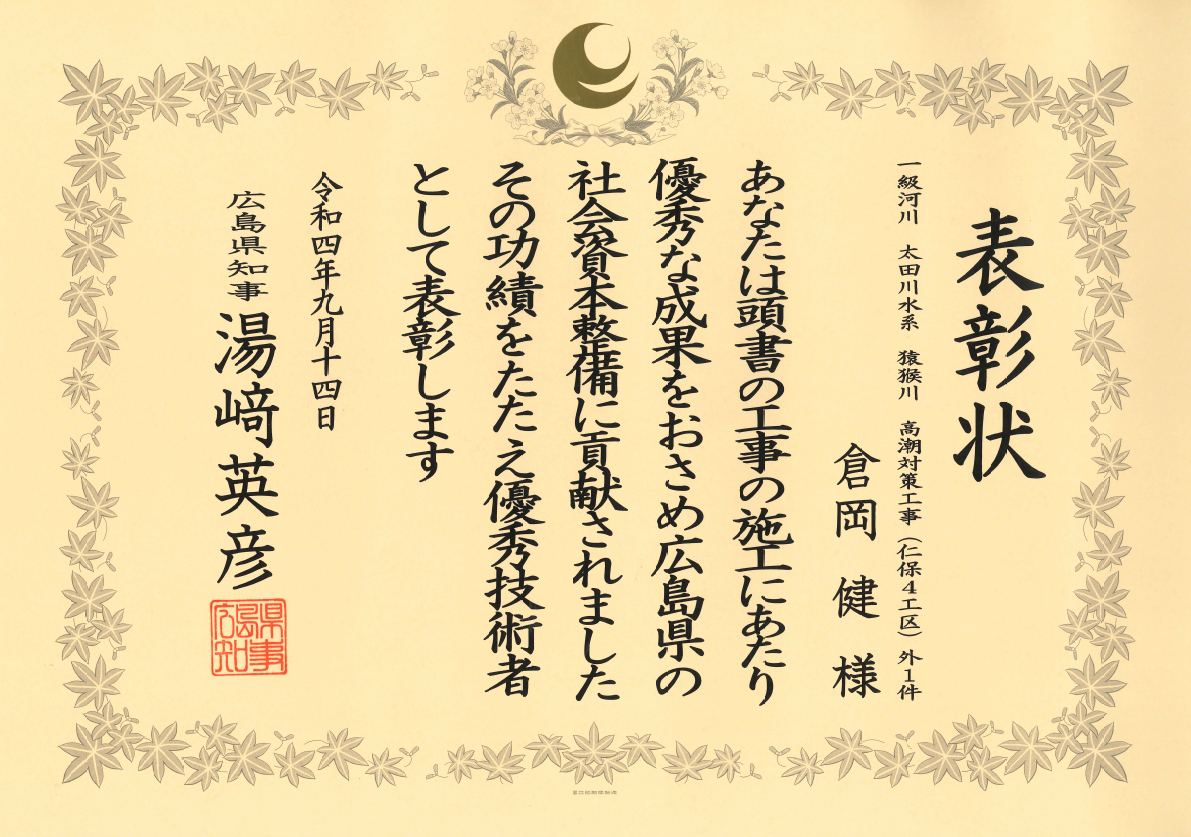 表彰状
一級河川 太田川水系 猿猴川 高潮対策工事（仁保4工区）外1件
倉岡 健 様
あなたは頭書の工事の施工にあたり
優秀な成果をおさめ広島県の
社会資本整備に貢献されました
その功績をたたえ優秀技術者
として表彰します
令和四年九月十四日
広島県知事 湯﨑英彦